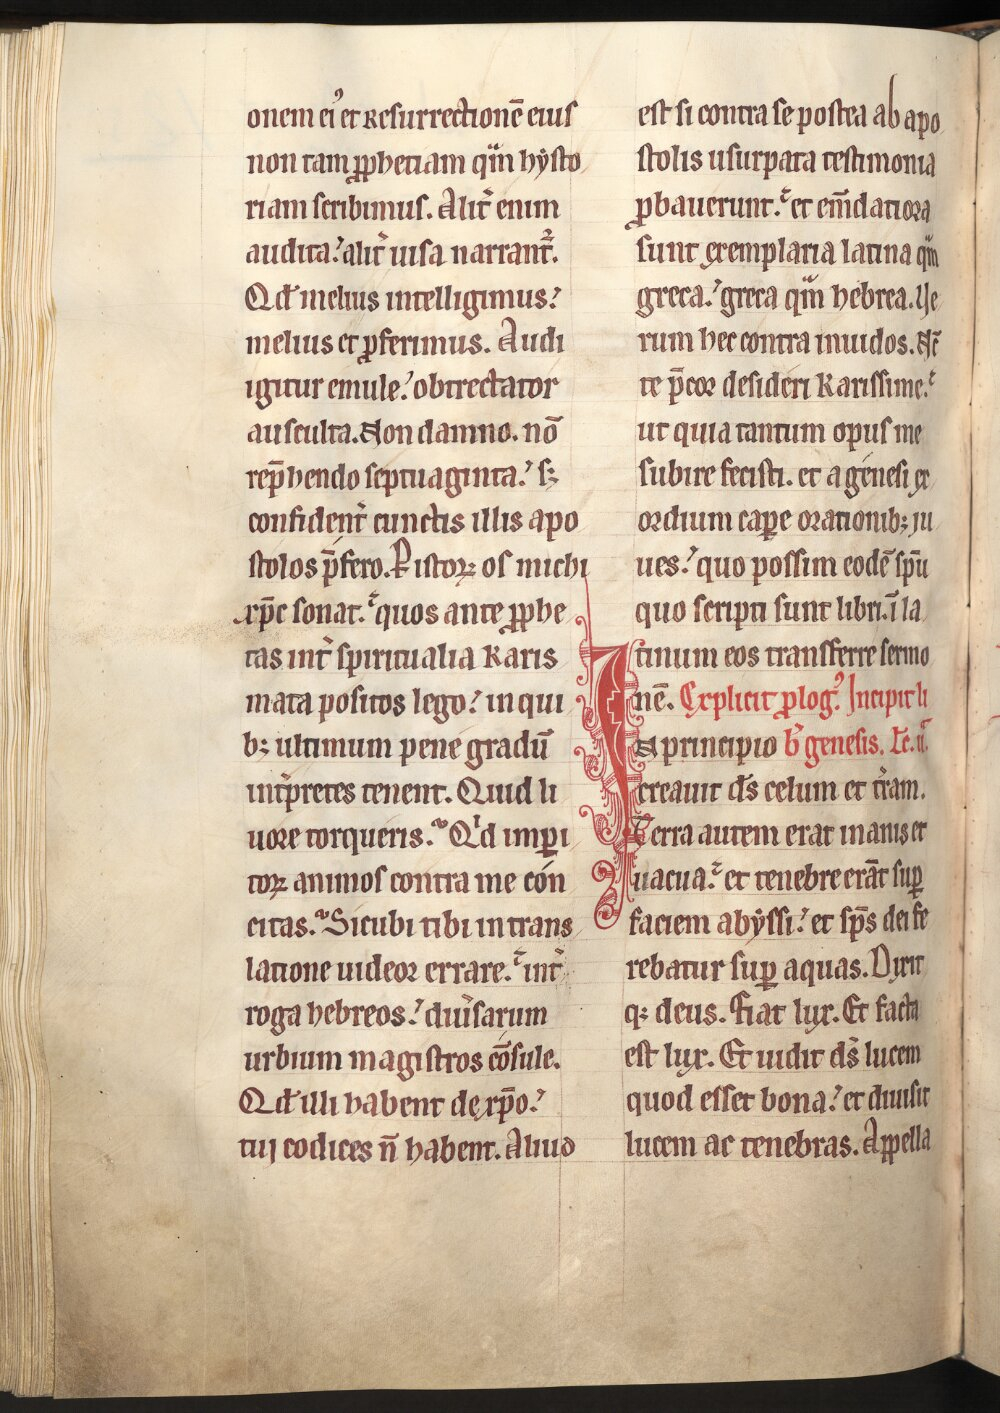 onem ei᾽ et Resurrectionē eius
non tam ꝓphetiam qͣm hẏsto
riam scribimus. Alit᷑ enim
audita.᾽ alit᷑ uisa narrant᷑.
Qd̄ melius intelligimus.᾽
melius et ꝓferimus. Audi
igitur emule.᾽ obtrectator
ausculta. Non damno. nō
rep̄hendo septuaginta.᾽ sꝫ
confident᷑ cunctis illis apo
stolos p̄fero. P istoꝝ os michi
xp̄c sonat. quos ante ꝓphe
tas int᷑ spiritualia Karis
mata positos lego.᾽ in qui
bꝫ ultimum pene gradū
int᷑pretes tenent. Quid li
uore torqueris. Qͥd imꝑi
toꝝ animos contra me con
citas. Sicubi tibi in trans
latione uideor errare. int᷑
roga hebreos.᾽ diu᷑sarum
urbium magistros cōsule.
Qd̄ illi habent de xp̄o.᾽
tuj codices n̄ habent. Aliud
est si contra se postea ab apo
stolis usurpata testimonia
ꝓbauerunt. et em̄datiora
sunt exemplaria latina qͣm
greca.᾽ greca qͣm hebrea. Ue
rum hec contra inuidos. Nc̄
te p̄cor desideri Karissime.
ut quia tantum opus me
subire fecisti. et a genesi ex
ordium caꝑe orationibꝫ ju
ues.᾽ quo possim eodē sp̄u
quo scripti sunt libri. ī la
tinum eos transferre sermo
nē. Explicit ꝓlog᾽. Incipit li
N principio b᷑ genesis. Ic. ii.
I creauit d̄s celum et t᷑ram.
Terra autem erat inanis et
uacua. et tenebre erāt suꝑ
faciem abẏssi.᾽ et sp̄s dei fe
rebatur suꝑ aquas. Dixit
qꝫ deus. Fiat lux. Et facta
est lux. Et uidit d̄s lucem
quod esset bona.᾽ et diuisit
lucem ac tenebras. Aꝑpella